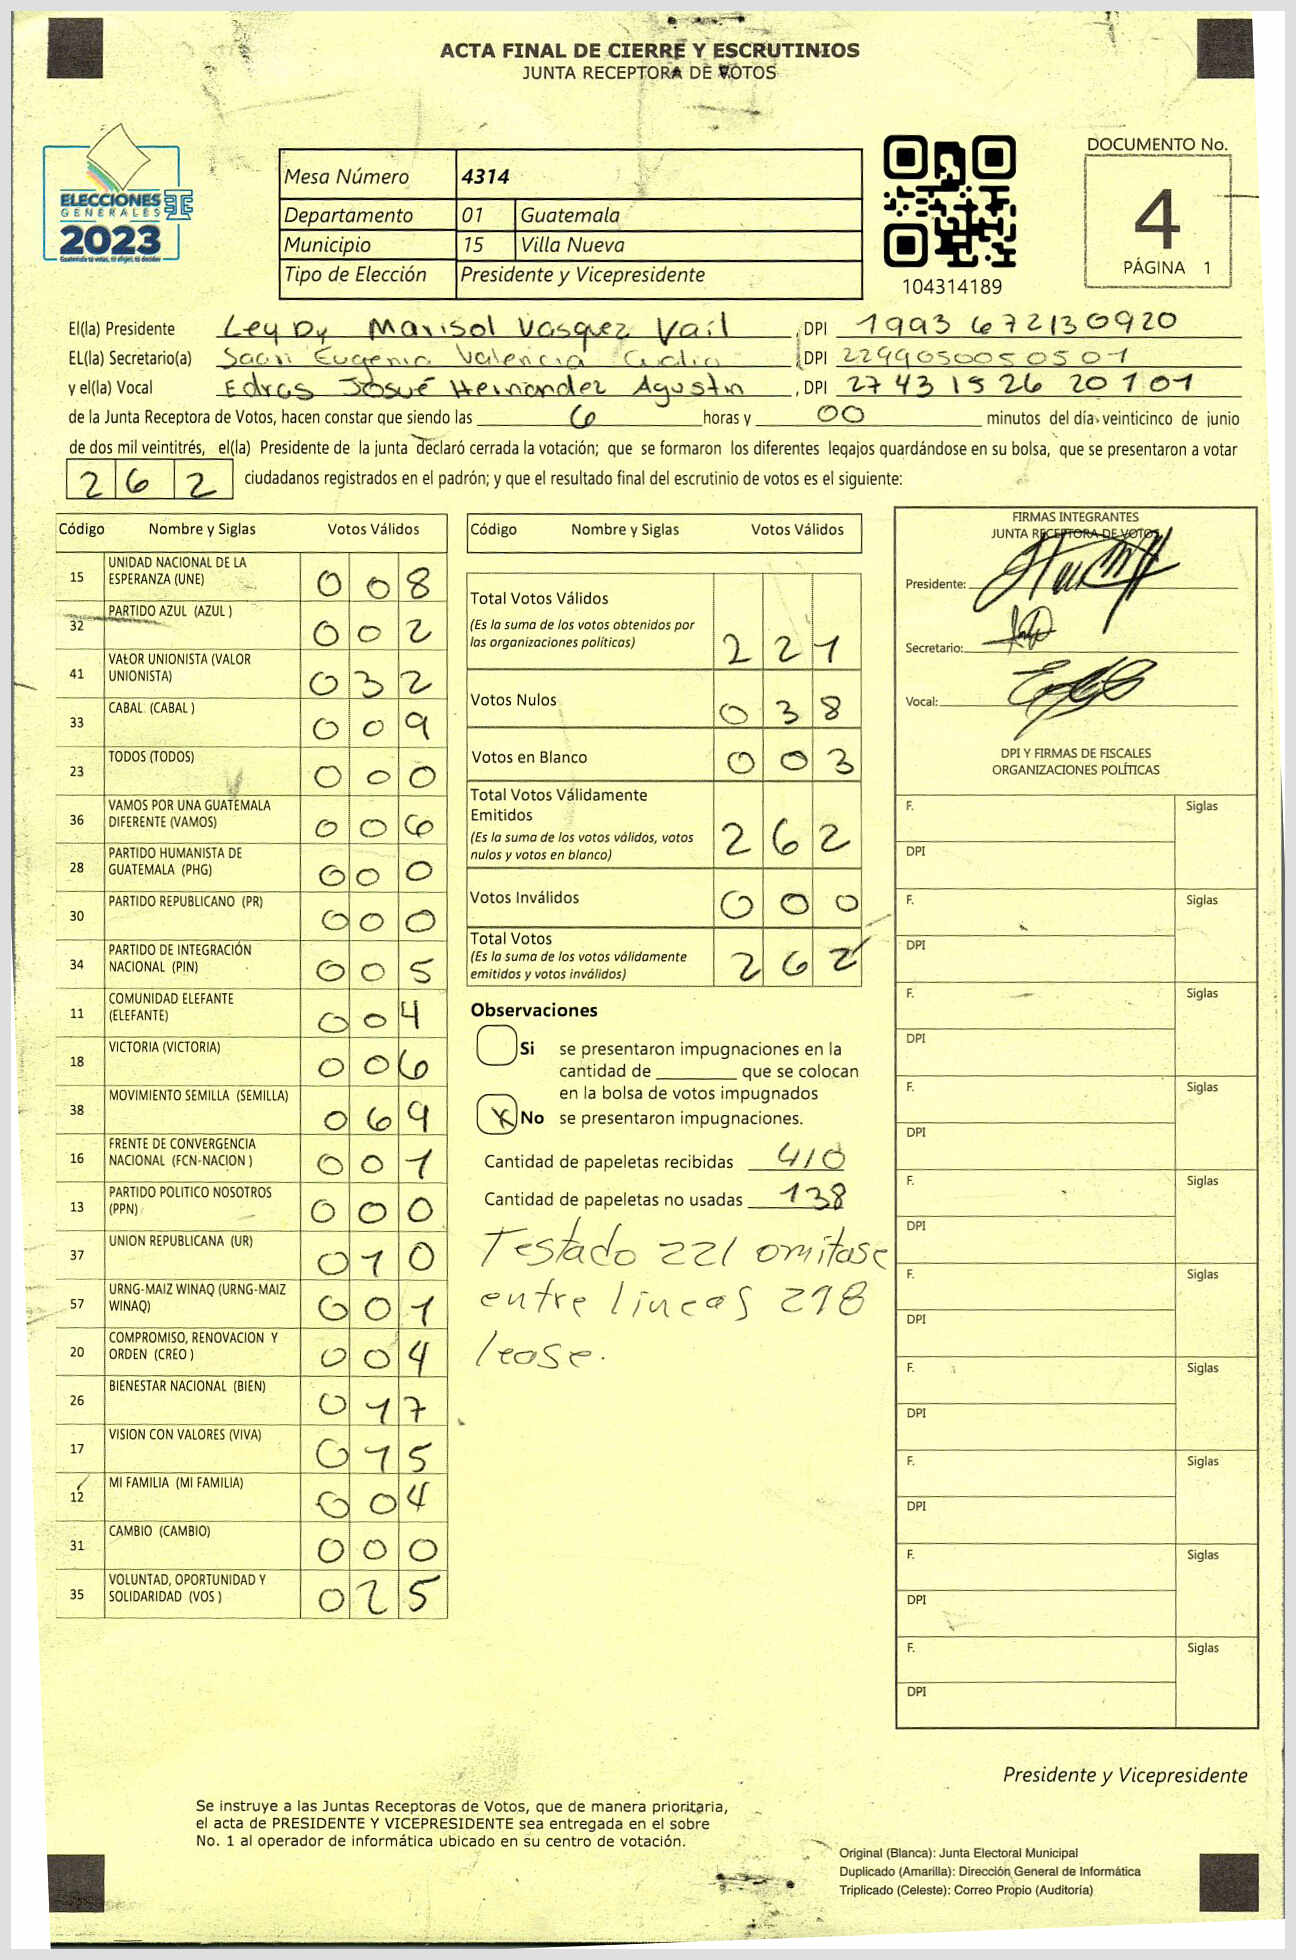 ACTA FINAL DE CIERRE Y ESCRUTINIOS
JUNTA RECEPTORA DE VOTOS
ELECCIONES
GENERALES
2023
Guatemala tú votas, tú eliges, tú decides
Mesa Número 4314
Departamento 01 Guatemala
Municipio 15 Villa Nueva
Tipo de Elección Presidente y Vicepresidente
104314189
DOCUMENTO No.
4
PÁGINA 1
El(la) Presidente Leydy Marisol Vasquez Vail , DPI 1993 67213 0920
EL(la) Secretario(a) Eugenia Valencia DPI 2299050050501
y el(la) Vocal Edras Josué Hernández Agustin , DPI 2743 1526 20101
de la Junta Receptora de Votos, hacen constar que siendo las 6 horas y 00 minutos del día veinticinco de junio
de dos mil veintitrés, el(la) Presidente de la junta declaró cerrada la votación; que se formaron los diferentes legajos quardándose en su bolsa, que se presentaron a votar
262 ciudadanos registrados en el padrón; y que el resultado final del escrutinio de votos es el siguiente:
Código Nombre y Siglas Votos Válidos
15 UNIDAD NACIONAL DE LA
ESPERANZA (UNE) 008
32 PARTIDO AZUL (AZUL ) 002
41 VALOR UNIONISTA (VALOR
UNIONISTA) 032
33 CABAL (CABAL ) 009
23 TODOS (TODOS) 000
36 VAMOS POR UNA GUATEMALA
DIFERENTE (VAMOS) 006
28 PARTIDO HUMANISTA DE
GUATEMALA (PHG) 000
30 PARTIDO REPUBLICANO (PR) 000
34 PARTIDO DE INTEGRACIÓN
NACIONAL (PIN) 005
11 COMUNIDAD ELEFANTE
(ELEFANTE) 004
18 VICTORIA (VICTORIA) 006
38 MOVIMIENTO SEMILLA (SEMILLA) 069
16 FRENTE DE CONVERGENCIA
NACIONAL (FCN-NACION ) 001
13 PARTIDO POLITICO NOSOTROS
(PPN) 000
37 UNION REPUBLICANA (UR) 010
57 URNG-MAIZ WINAQ (URNG-MAIZ
WINAQ) 001
20 COMPROMISO, RENOVACION Y
ORDEN (CREO ) 004
26 BIENESTAR NACIONAL (BIEN) 017
17 VISION CON VALORES (VIVA) 015
12 MI FAMILIA (MI FAMILIA) 004
31 CAMBIO (CAMBIO) 000
35 VOLUNTAD, OPORTUNIDAD Y
SOLIDARIDAD (VOS ) 025
Código Nombre y Siglas Votos Válidos
Total Votos Válidos
(Es la suma de los votos obtenidos por
las organizaciones políticas) 221
Votos Nulos 038
Votos en Blanco 003
Total Votos Válidamente
Emitidos
(Es la suma de los votos válidos, votos
nulos y votos en blanco) 262
Votos Inválidos 000
Total Votos
(Es la suma de los votos válidamente
emitidos y votos inválidos) 262
Observaciones
Si se presentaron impugnaciones en la
cantidad de ________ que se colocan
en la bolsa de votos impugnados
X No se presentaron impugnaciones.
Cantidad de papeletas recibidas 410
Cantidad de papeletas no usadas 138
Testado 221 omitase
entre lineas 218
lease.
FIRMAS INTEGRANTES
JUNTA RECEPTORA DE VOTOS
Presidente:
Secretario:
Vocal:
DPI Y FIRMAS DE FISCALES
ORGANIZACIONES POLÍTICAS
F. Siglas
DPI
F. Siglas
DPI
F. Siglas
DPI
F. Siglas
DPI
F. Siglas
DPI
F. Siglas
DPI
F. Siglas
DPI
F. Siglas
DPI
F. Siglas
DPI
F. Siglas
DPI
Presidente y Vicepresidente
Se instruye a las Juntas Receptoras de Votos, que de manera prioritaria,
el acta de PRESIDENTE Y VICEPRESIDENTE sea entregada en el sobre
No. 1 al operador de informática ubicado en su centro de votación.
Original (Blanca): Junta Electoral Municipal
Duplicado (Amarilla): Dirección General de Informática
Triplicado (Celeste): Correo Propio (Auditoría)